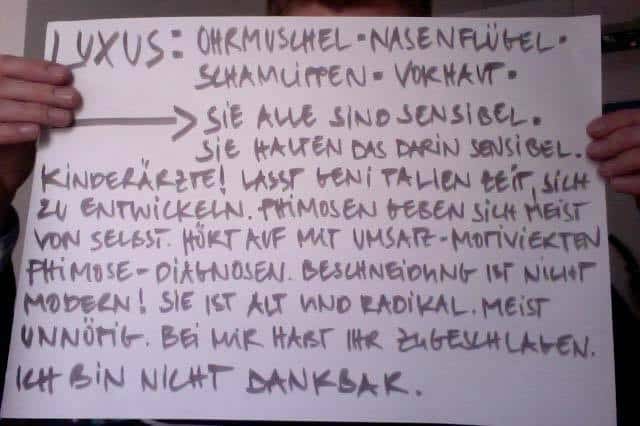 LUXUS: OHRMUSCHEL • NASENFLÜGEL •
SCHAMLIPPEN • VORHAUT •
→ SIE ALLE SIND SENSIBEL.
SIE HALTEN DAS DARIN SENSIBEL.
KINDERÄRZTE! LASST GENITALIEN ZEIT, SICH
ZU ENTWICKELN. PHIMOSEN GEBEN SICH MEIST
VON SELBST. HÖRT AUF MIT UMSATZ-MOTIVIERTEN
PHIMOSE-DIAGNOSEN. BESCHNEIDUNG IST NICHT
MODERN! SIE IST ALT UND RADIKAL. MEIST
UNNÖTIG. BEI MIR HABT IHR ZUGESCHLAGEN.
ICH BIN NICHT DANKBAR.